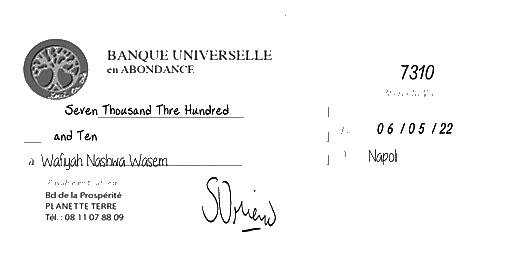 BANQUE UNIVERSELLE
en ABONDANCE
7310
Seven Thousand Thre Hundred
and Ten
06/05/22
à Wafiyah Nashwa Wasem
Napoli
Bd de la Prospérité
PLANETTE TERRE
Tél. : 08 11 07 88 09